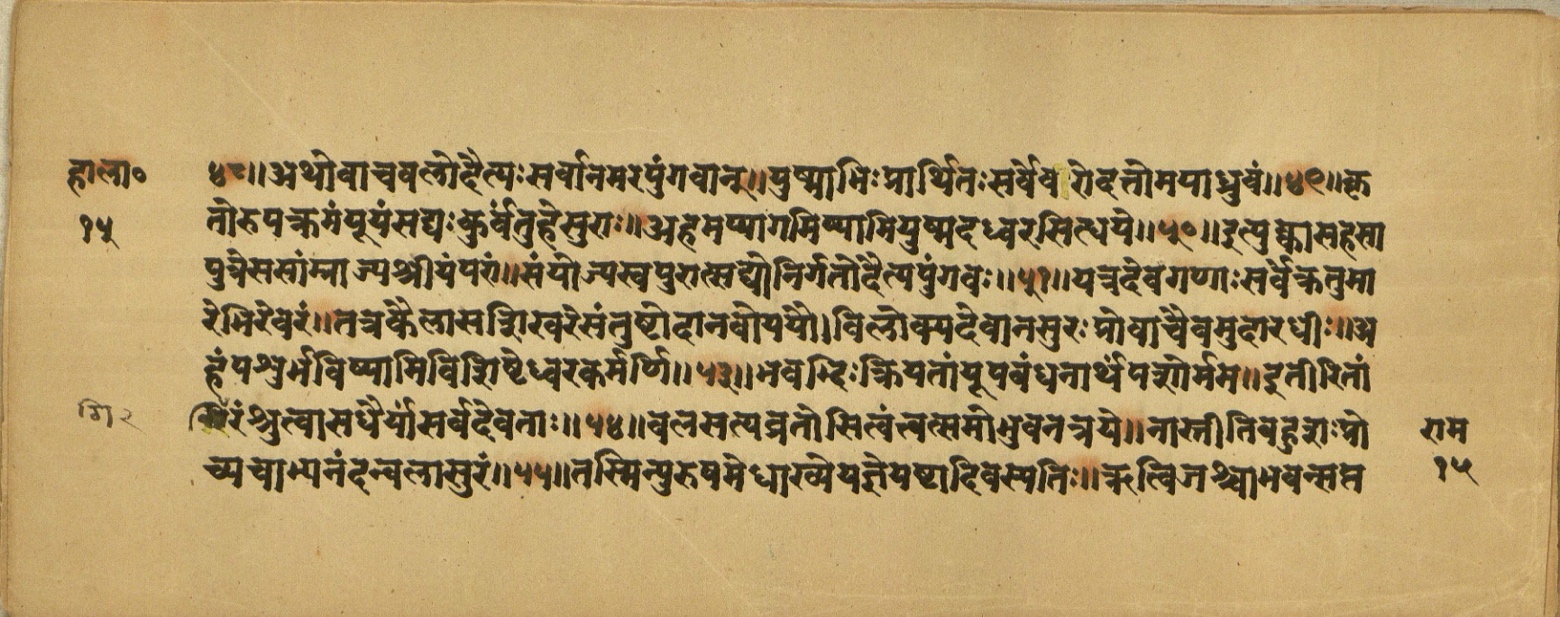 हाला०
१५
४८॥अथोवाचबलोदैत्यःसर्वानमरपुंगवान्॥युष्माभिःप्रार्थितःसर्वैवरोदत्तोमयाध्रुवं॥४९॥क्र
तोरुपक्रमंयूयंसद्यःकुर्वंतुहेसुराः॥अहमप्यागमिष्यामियुष्मदध्वरसित्धये॥५०॥इत्युक्त्वासहसा
पुत्रेससांम्राज्यश्रीयंपरां॥संयोज्यस्वपुरात्सद्योनिर्गतोदैत्यपुंगवः॥५१॥यत्रदेवगणाःसर्वेक्रतुमा
रेभिरेवरं॥तत्रकैलासशिखरेसंतुष्टोदानवोययौ।विलोक्यदेवानसुरःप्रोवाचैवमुदारधीः॥अ
हंपशुर्भविष्यामिविशिष्टेध्वरकर्मणि॥५३॥भवद्भिःक्रियतांयूपबंधनार्थंपशोर्मम॥इतीरितां
गिरंश्रुत्वासधैर्यांसर्वदेवताः॥५४॥बलसत्यव्रतोसित्वंत्वत्समोभुवनत्रये॥नास्तीतिबहुशःप्रो
च्यचाभ्यनंदन्बलासुरं॥५५॥तस्मिन्पुरुषमेधाख्येयज्ञेयष्टादिवस्पतिः॥ऋत्विजश्चाभवन्सप्त
गि २
राम
१५